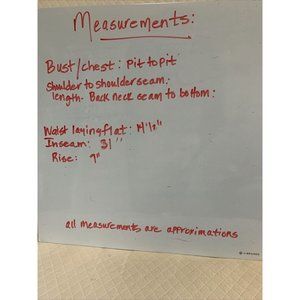 Measurements:
Bust/chest: Pit to pit
Shoulder to shoulder seam:
length- Back neck seam to bottom:
Waist laying flat: 14 1/2"
Inseam: 31"
Rise: 9"
all measurements are approximations